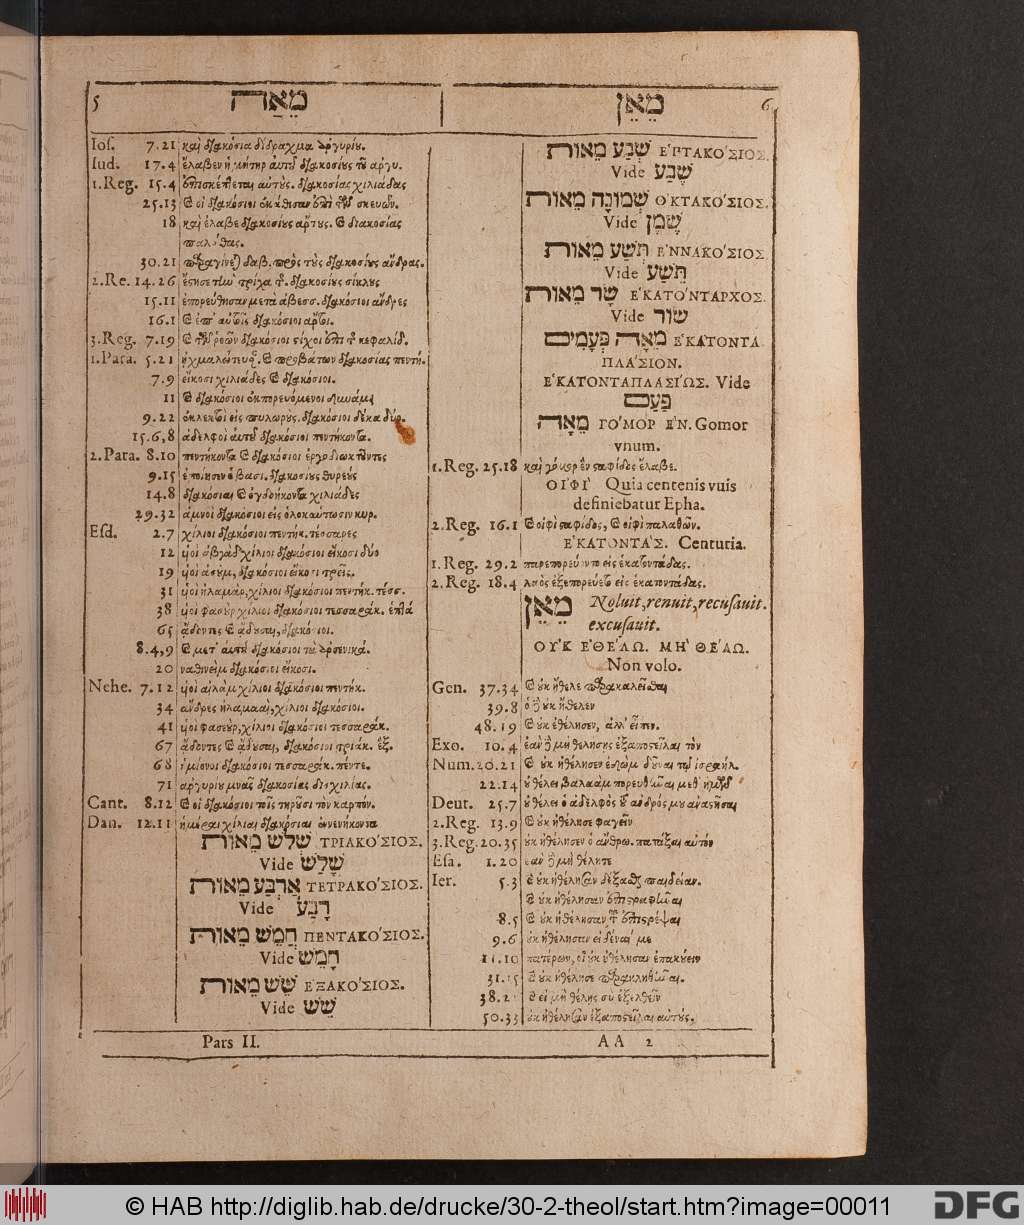 5 מֵאָה
Ios. 7.21 καὶ διακόσια δίδραχμα ἀργυρίου.
Iud. 17.4 ἔλαβεν ἡ μήτηρ αὐτοῦ διακοσίους τοῦ ἀργυ.
1.Reg. 15.4 ἐπισκέπτεται αὐτοὺς. διακοσίας χιλιάδας
25.13 καὶ οἱ διακόσιοι ἐκάθισαν ἐπὶ τῶν σκευῶν.
18 καὶ ἔλαβε διακοσίους ἄρτους. καὶ διακοσίας
παλάθας.
30.21 παραγίνεται δαβ. πρὸς τοὺς διακοσίους ἄνδρας.
2.Re. 14.26 ἔστησε τὴν τρίχα διακοσίους σίκλους
15.11 ἐπορεύθησαν μετὰ ἀβεσσ. διακόσιοι ἄνδρες
16.1 καὶ ἐπ' αὐτοῖς διακόσιοι ἄρτοι.
3.Reg. 7.19 καὶ τῶν ῥοῶν διακόσιοι στίχοι ἐπὶ κεφαλίδ.
1.Para. 5.21 ᾐχμαλώτευσ. καὶ προβάτων διακοσίας πεντή.
7.9 εἴκοσι χιλιάδες καὶ διακόσιοι.
11 καὶ διακόσιοι ἐκπορευόμενοι δυνάμει
9.22 ἐκλεκτοὶ εἰς πυλωροὺς. διακόσιοι δέκα δύο.
15.6,8 ἀδελφοὶ αὐτοῦ διακόσιοι πεντήκοντα.
2.Para. 8.10 πεντήκοντα καὶ διακόσιοι ἐργοδιωκτοῦντες
9.15 ἐποίησεν ὁ βασι. διακοσίους θυρεοὺς
14.8 διακόσιαι καὶ ὀγδοήκοντα χιλιάδες
29.32 ἀμνοὶ διακόσιοι εἰς ὁλοκαύτωσιν κυρ.
Esd. 2.7 χίλιοι διακόσιοι πεντήκ. τέσσαρες
12 υἱοὶ ἀβγὰδ χίλιοι διακόσιοι εἴκοσι δύο
19 υἱοὶ ἀσὺμ, διακόσιοι εἴκοσι τρεῖς.
31 υἱοὶ ἠλαμὰρ, χίλιοι διακόσιοι πεντήκ. τέσσ.
38 υἱοὶ φασοὺρ χίλιοι διακόσιοι τεσσαράκ. ἑπτά
65 ᾄδοντες καὶ ᾄδουσαι, διακόσιοι.
8.4,9 καὶ μετ' αὐτοῦ διακόσιοι τὰ ἀρσενικά.
20 ναθινεὶμ διακόσιοι εἴκοσι.
Nehe. 7.12 υἱοὶ αἰλὰμ χίλιοι διακόσιοι πεντήκ.
34 ἄνδρες ἠλαμαὰρ, χίλιοι διακόσιοι.
41 υἱοὶ φασεοὺρ, χίλιοι διακόσιοι τεσσαράκ.
67 ᾄδοντες καὶ ᾄδουσαι, διακόσιοι τριάκ. ἕξ.
68 ἡμίονοι διακόσιοι τεσσαράκ. πέντε.
71 ἀργυρίου μνᾶς διακοσίας δισχιλίας.
Cant. 8.12 καὶ οἱ διακόσιοι τοῖς τηροῦσι τὸν καρπόν.
Dan. 12.11 ἡμέραι χίλιαι διακόσιαι ἐννενήκοντα
שְׁלֹשׁ מֵאוֹת ΤΡΙΑΚΟ΄ΣΙΟΣ.
Vide שָׁלַשׁ
אַרְבַּע מֵאוֹת ΤΕΤΡΑΚΟ΄ΣΙΟΣ.
Vide רָבַע
חֲמֵשׁ מֵאוֹת ΠΕΝΤΑΚΟ΄ΣΙΟΣ.
Vide חָמֵשׁ
שֵׁשׁ מֵאוֹת ΕΞΑΚΟ΄ΣΙΟΣ.
Vide שֵׁשׁ
Pars II.
מֵאֵן 6
שְׁבַע מֵאוֹת ΕΠΤΑΚΟ΄ΣΙΟΣ.
Vide שֶׁבַע
שְׁמוֹנָה מֵאוֹת ΟΚΤΑΚΟ΄ΣΙΟΣ.
Vide שֶׁמֶן
תְּשַׁע מֵאוֹת ΕΝΝΑΚΟ΄ΣΙΟΣ
Vide תֵּשַׁע
שָׂר מֵאוֹת ΕΚΑΤΟ΄ΝΤΑΡΧΟΣ.
Vide שׂוּר
מֵאָה פְּעָמִים ΕΚΑΤΟΝΤΑ
ΠΛΑ΄ΣΙΟΝ.
ΕΚΑΤΟΝΤΑΠΛΑΣΙ΄ΩΣ. Vide
פָּעַם
מֵאָה ΓΟ΄ΜΟΡ Ε῝Ν. Gomor
vnum.
1.Reg. 25.18 καὶ γόμορ ἓν σταφίδος ἔλαβε.
ΟΙ᾿ΦΙ΄ Quia centenis vuis
definiebatur Epha.
2.Reg. 16.1 καὶ οἰφὶ σταφίδος, καὶ οἰφὶ παλαθῶν.
ΕΚΑΤΟΝΤΑ΄Σ. Centuria.
1.Reg. 29.2 παρεπορεύοντο εἰς ἑκατοντάδας.
2.Reg. 18.4 λαὸς ἐξεπορεύετο εἰς ἑκατοντάδας.
מֵאֵן Noluit, renuit, recusauit.
excusauit.
ΟΥ᾿Κ ΕΘΕ΄ΛΩ. ΜΗ` ΘΕ΄ΛΩ.
Non volo.
Gen. 37.34 καὶ οὐκ ἤθελε παρακαλεῖσθαι
39.8 ὁ δὲ οὐκ ἤθελεν
48.19 καὶ οὐκ ἐθέλησεν, ἀλλ' εἶπεν.
Exo. 10.4 ἐὰν δὲ μὴ θελήσῃς ἐξαποστεῖλαι τὸν
Num. 20.21 καὶ οὐκ ἠθέλησεν ἐδὼμ δοῦναι τῷ ἰσραήλ.
22.14 οὐ θέλει βαλαὰμ πορευθῆναι μεθ' ἡμῶν
Deut. 25.7 οὐ θέλει ὁ ἀδελφὸς τοῦ ἀνδρός μου ἀναστῆσαι
2.Reg. 13.9 καὶ οὐκ ἠθέλησε φαγεῖν
3.Reg. 20.35 οὐκ ἠθέλησεν ὁ ἄνθρω. πατάξαι αὐτόν
Esa. 1.20 ἐὰν δὲ μὴ θέλητε
Ier. 5.3 καὶ οὐκ ἠθέλησαν δέξασθαι παιδείαν.
καὶ οὐκ ἠθέλησαν ἐπιστραφῆναι
8.5 καὶ οὐκ ἠθέλησαν τοῦ ἐπιστρέψαι
9.6 οὐκ ἠθέλησαν εἰδέναι με
11.10 πατέρων, οἳ οὐκ ἠθέλησαν ἐπακούειν
31.15 καὶ οὐκ ἠθέλησε παρακληθῆναι.
38.2 καὶ εἰ μὴ θέλῃς σὺ ἐξελθεῖν
50.33 οὐκ ἠθέλησαν ἐξαποστεῖλαι αὐτούς.
AA 2
© HAB http://diglib.hab.de/drucke/30-2-theol/start.htm?image=00011
DFG